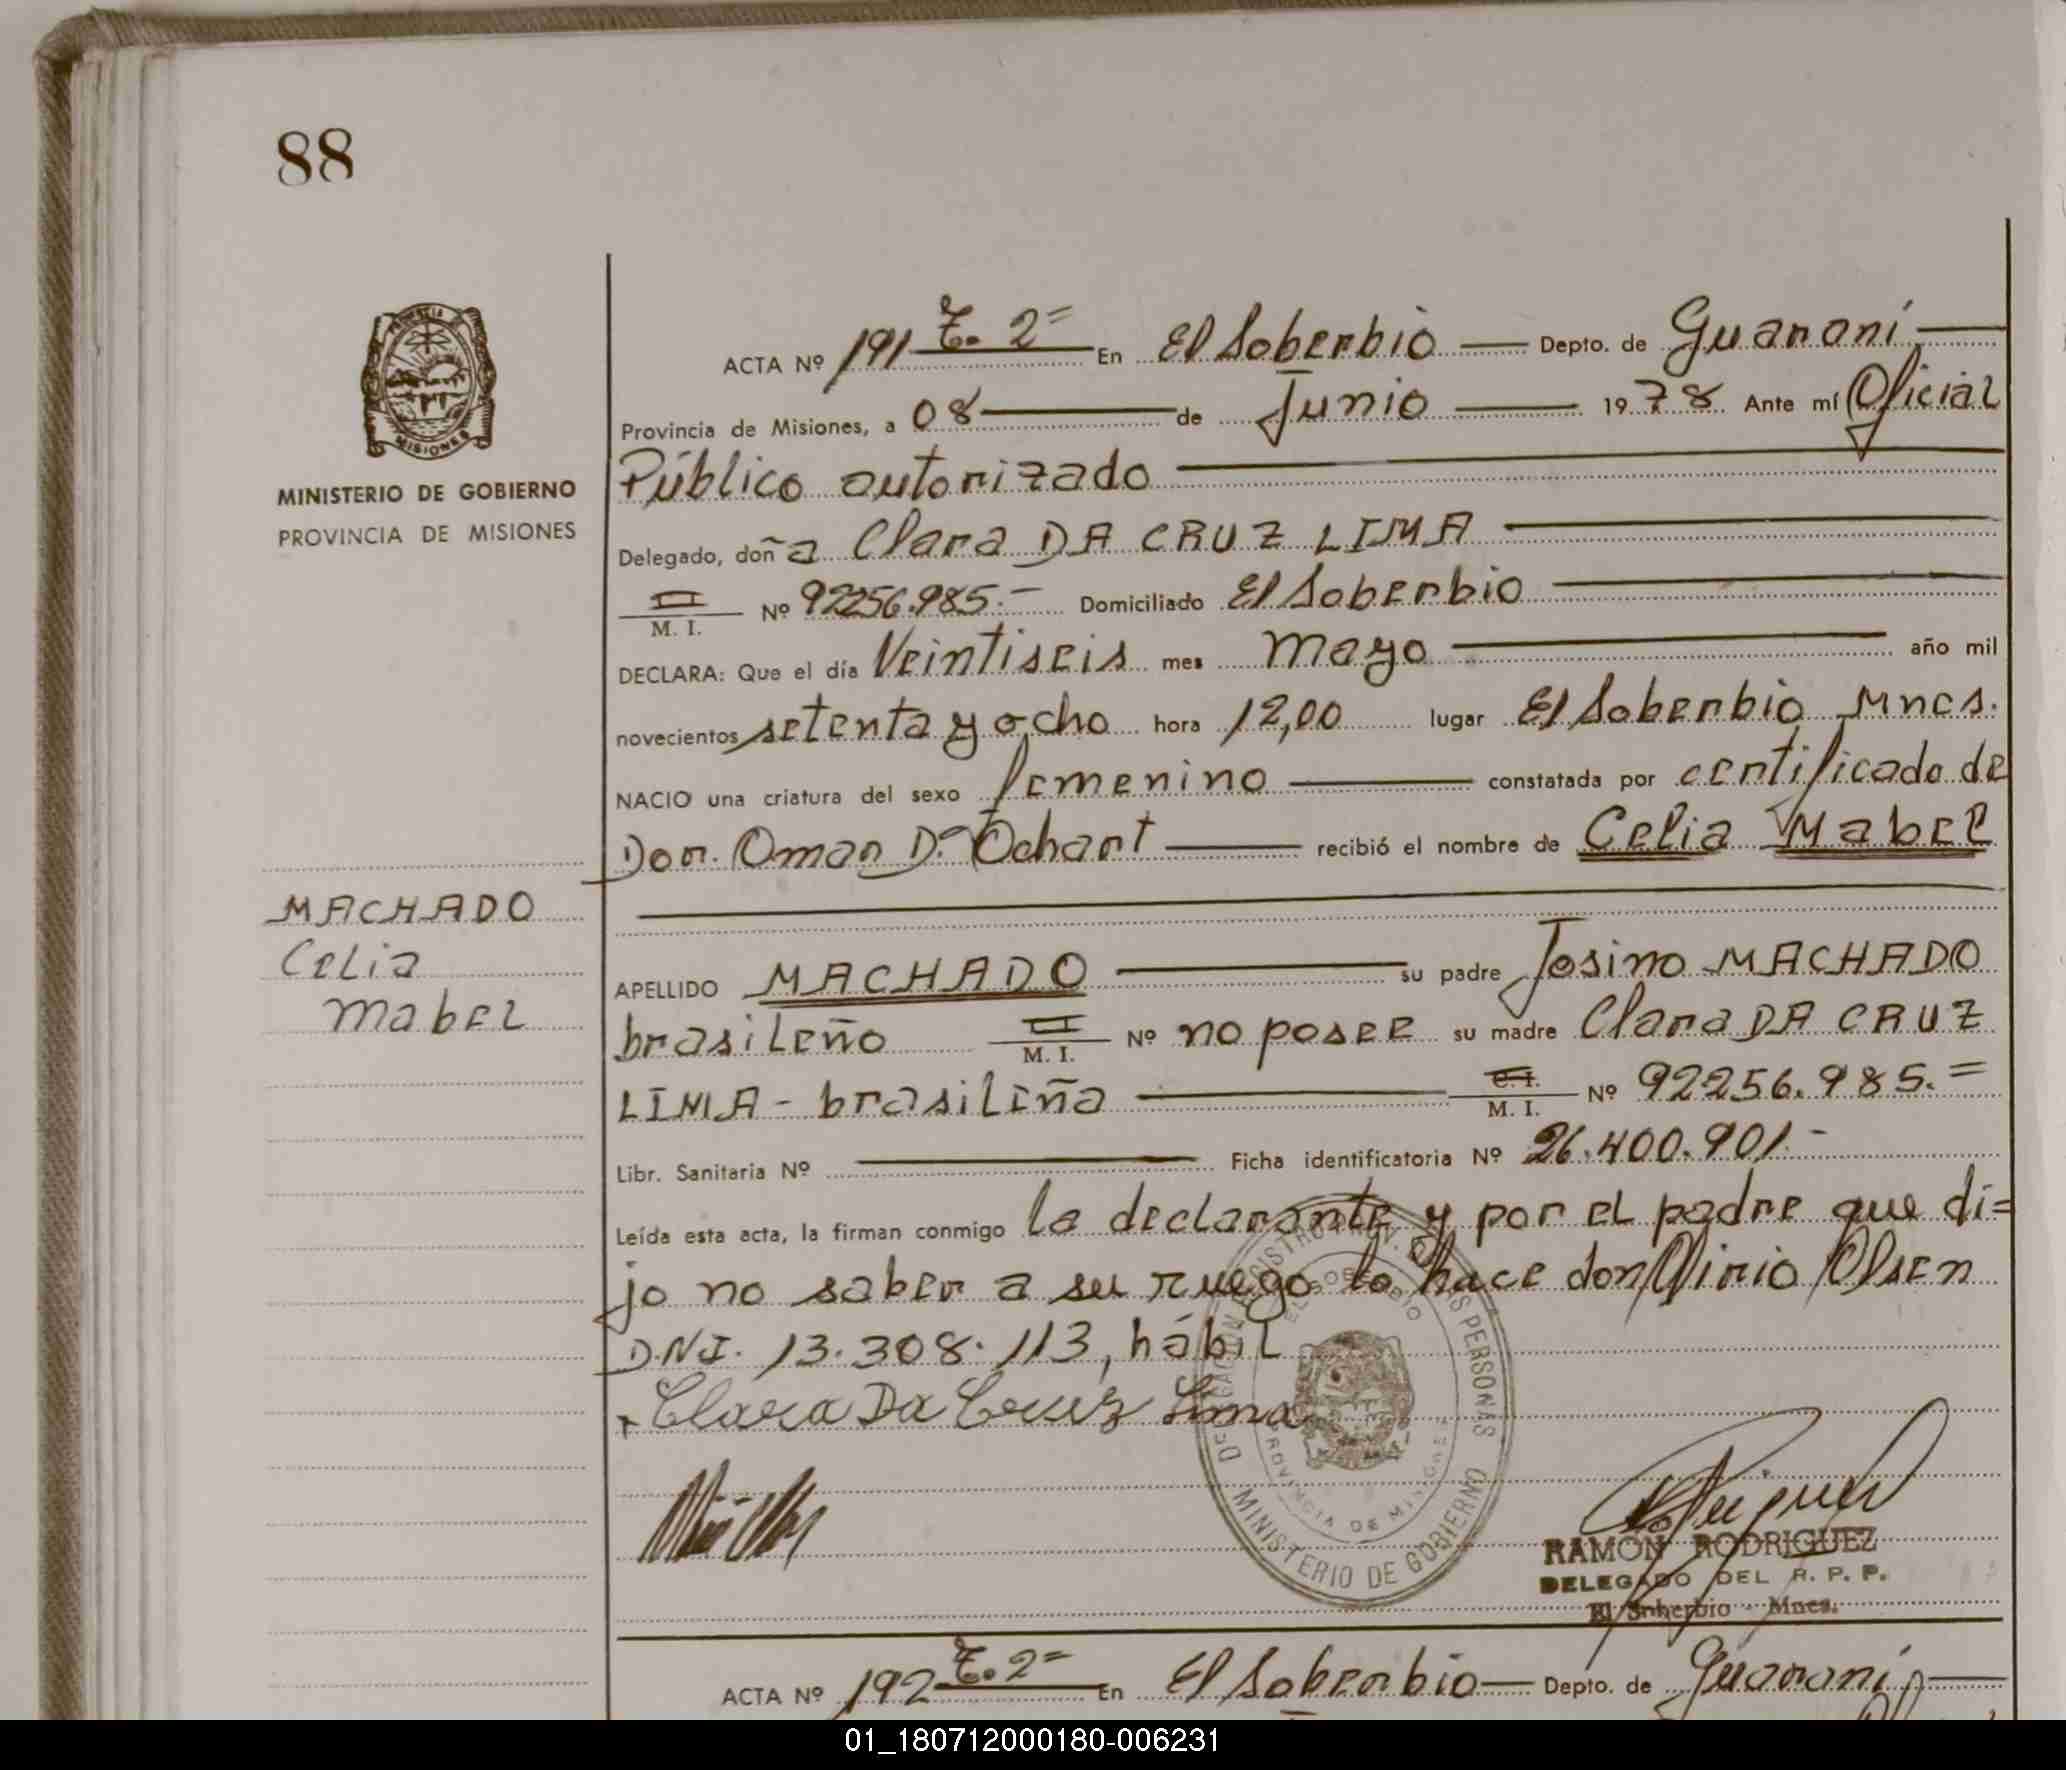 88
PROVINCIA
MISIONES
MINISTERIO DE GOBIERNO
PROVINCIA DE MISIONES
MACHADO
Celia
Mabel
ACTA Nº 191 T. 2º En El Soberbio Depto. de Guaraní
Provincia de Misiones, a 08 de Junio 1978 Ante mí Oficial
Público autorizado
Delegado, doña Clara DA CRUZ LIMA
M. I. Nº 92256.985.- Domiciliado El Soberbio
DECLARA: Que el día Veintiseis mes Mayo año mil
novecientos setenta y ocho hora 12,00 lugar El Soberbio Mnes.
NACIO una criatura del sexo femenino constatada por certificado de
Doct. Omar D. Ochart recibió el nombre de Celia Mabel
APELLIDO MACHADO su padre Josino MACHADO
brasileño M. I. Nº no posee su madre Clara DA CRUZ
LIMA - brasileña C. I. M. I. Nº 92256.985.=
Libr. Sanitaria Nº Ficha identificatoria Nº 26.400.901.-
Leída esta acta, la firman conmigo la declarante y por el padre que di=
jo no saber a su ruego lo hace don Olsen
D.N.I. 13.308.113, hábil
Clara Da Cruz Lima
MINISTERIO DE GOBIERNO
EL SOBERBIO
PROVINCIA DE MISIONES
RAMON RODRIGUEZ
DELEGADO DEL R. P. P.
El Soberbio - Mnes.
ACTA Nº 192 T. 2º En El Soberbio Depto. de Guaraní
01_180712000180-006231